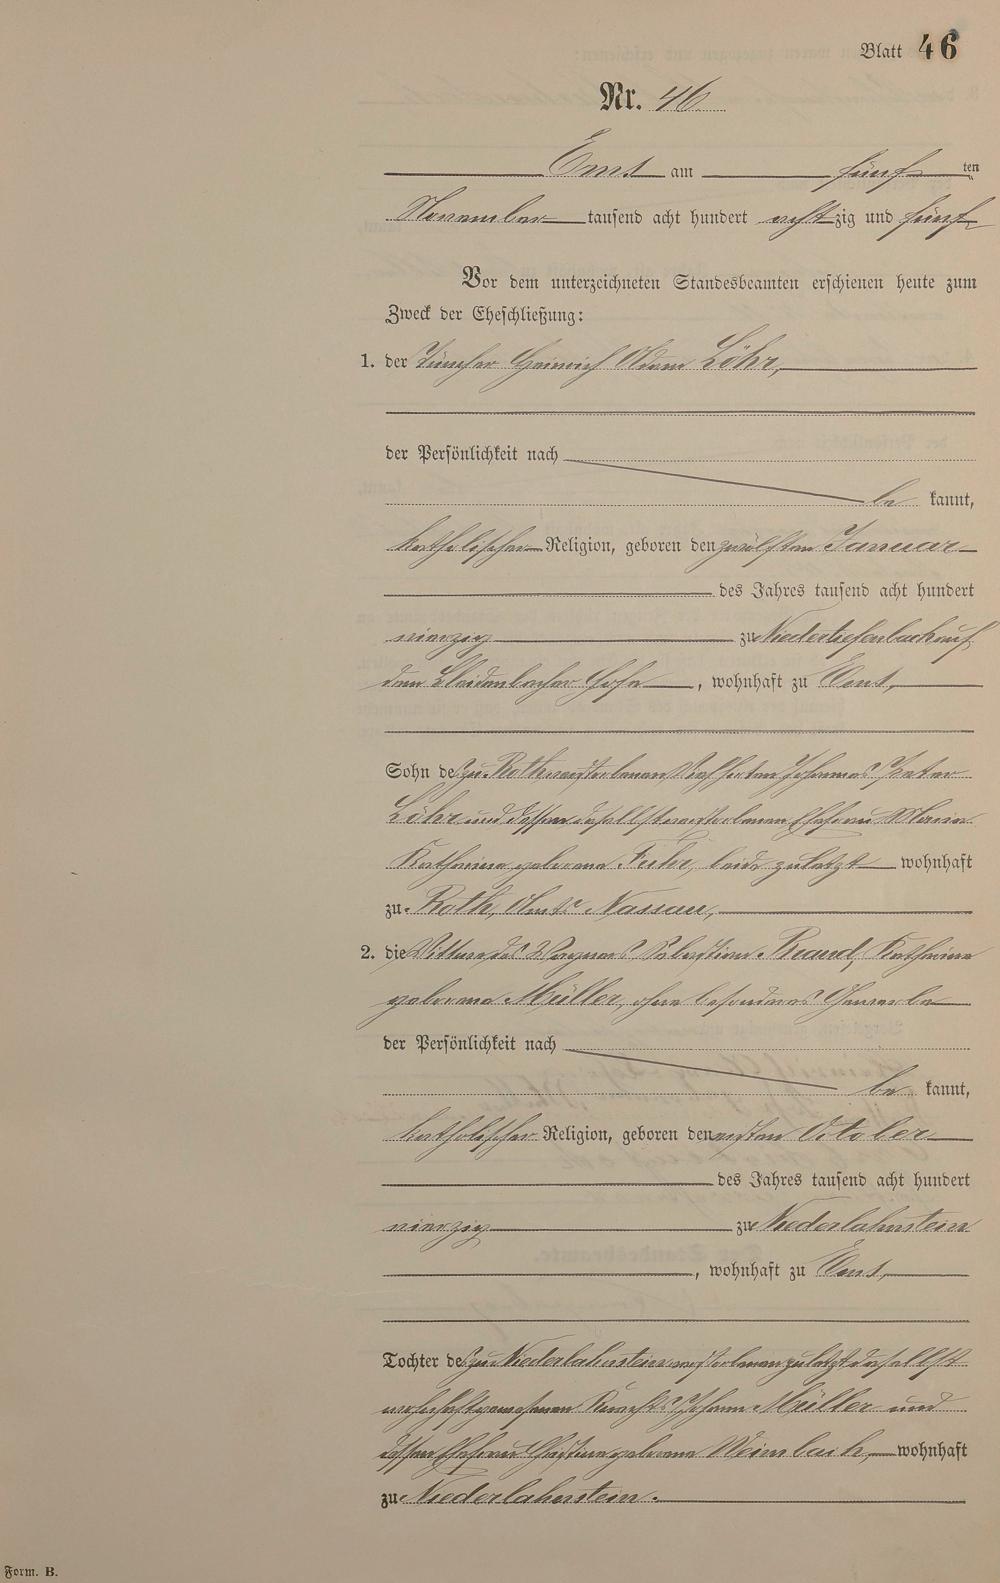 Blatt 46
Nr. 46
Ems am fünf ten
November tausend acht hundert achtzig und fünf
Vor dem unterzeichneten Standesbeamten erschienen heute zum
Zweck der Eheschließung:
1. der Tüncher Heinrich Adam Löhr,
der Persönlichkeit nach
be kannt,
katholischer Religion, geboren den zwölften Januar
des Jahres tausend acht hundert
vierzig zu Niedertiefenbach auf
dem Bleidenbacher Hofe, wohnhaft zu Ems,
Sohn des zu Roth verstorbenen Johannes Peter
Löhr und dessen daselbst verstorbenen Ehefrau Maria
Katharina geborene beide zuletzt wohnhaft
zu Roth, Amts Nassau,
2. die Wittwe des Wagners Sebastian Katharina
geborene Müller, ohne besonderes Gewerbe
der Persönlichkeit nach
be kannt,
katholischer Religion, geboren den ersten October
des Jahres tausend acht hundert
vierzig zu Niederlahnstein
, wohnhaft zu Ems,
Tochter des zu Niederlahnstein verstorbenen zuletzt daselbst
wohnhaft gewesenen Johann Müller und
dessen Ehefrau Christina geborene Weimbach, wohnhaft
zu Niederlahnstein.
Form. B.